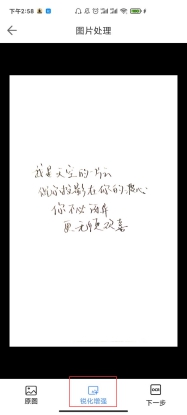 下午2:58
图片处理
我是天空的一片云
偶尔投影在你的波心
你不必讶异
更无须欢喜
原图
锐化增强
下一步